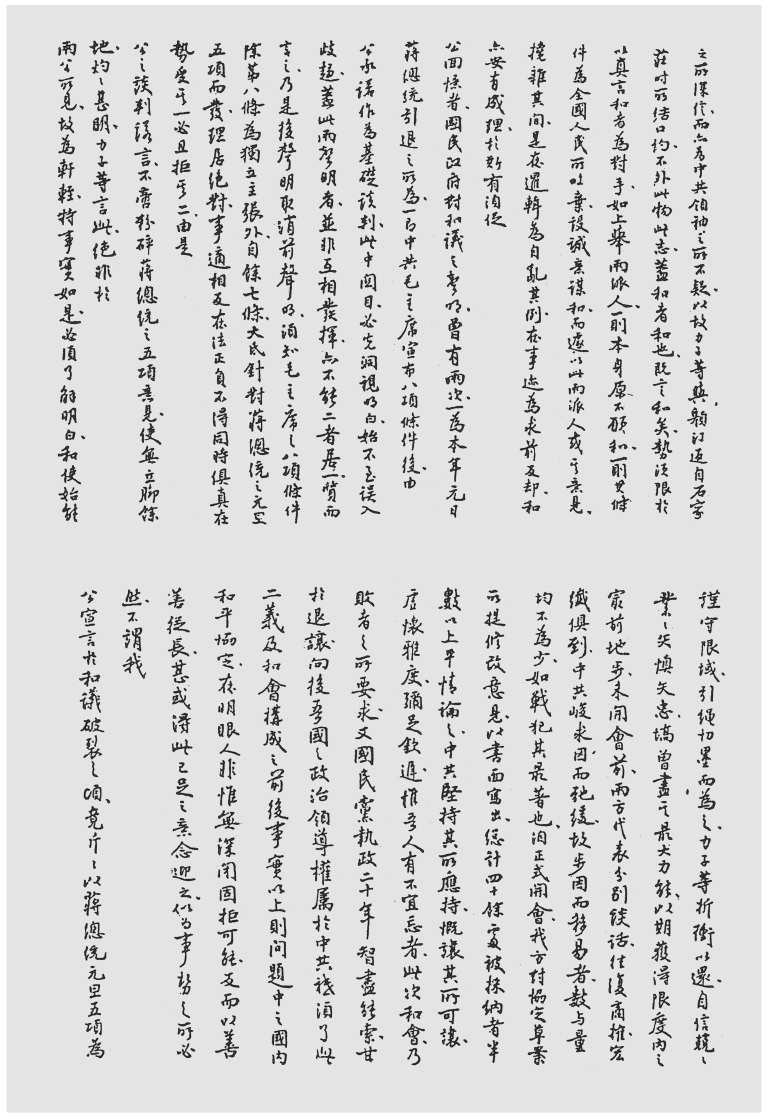 之所深信、而亦為中共領袖之所不疑、以故力子等與顏江返自石家
莊時所結口約、不外此物此志、蓋和者和也、既言和矣、勢須限於
以真言和者為對手、如上舉兩派人、一則本身原不願和、一則其條
件為全國人民所吐棄、設誠意謀和而遽以此兩派人或其意見、
擾雜其間、是在邏輯為自亂其例、在事迹為求前反却、和
亦安有成理、於斯有須促
公回憶者、國民政府對和議之聲明、曾有兩次、一為本年元旦
蔣總統引退之所為、一為中共毛主席宣布八項條件後、由
公承諾作為基礎談判、此中關目、必先洞視明白、始不至誤入
歧趨、蓋此兩聲明者、並非互相發揮、亦不能二者居一、質而
言之、乃是後聲明取消前聲明、須知毛主席之八項條件
除第八條為獨立主張外、自餘七條、大氐針對蔣總統之元旦
五項而發、理居絕對、事適相反、在法正負不得同時俱真、在
勢受其一必且拒其二、由是
公之談判諾言、不啻粉碎蔣總統之五項意見、使無立腳餘
地、灼灼甚明、力子等言此、絕非於
兩公所見、故為軒輊、特事實如是、必須了解明白、和使始能
謹守限域、引繩切墨而為之、力子等折衝以還、自信兢兢
業業、矢慎矢忠、塙曾盡其最大力能、以期獲得限度內之
最前地步、未開會前、兩方代表分別談話、往復商搉、宏
纖俱到、中共峻求因而弛緩、故步因而移易者、數與量
均不為少、如戰犯其最著也、洎正式開會、我方對協定草案
所提修改意見、以書面寫出、總計四十餘處、被採納者半
數以上、平情論之、中共堅持其所應持、慨讓其所可讓、
虛懷雅度、彌足欽遲、惟吾人有不宜忘者、此次和會、乃
敗者之所要求、又國民黨執政二十年、智盡能索、甘
於退讓、向後吾國之政治領導權屬於中共、秪須了此
二義及和會構成之前後事實、以上則問題中之國內
和平協定、在明眼人非惟無深閉固拒可能、反而以善
善從長、甚或得此已足之意念迎之、似為事勢之所必
然、不謂我
公宣言於和議破裂之頃、竟斤斤以蔣總統元旦五項為